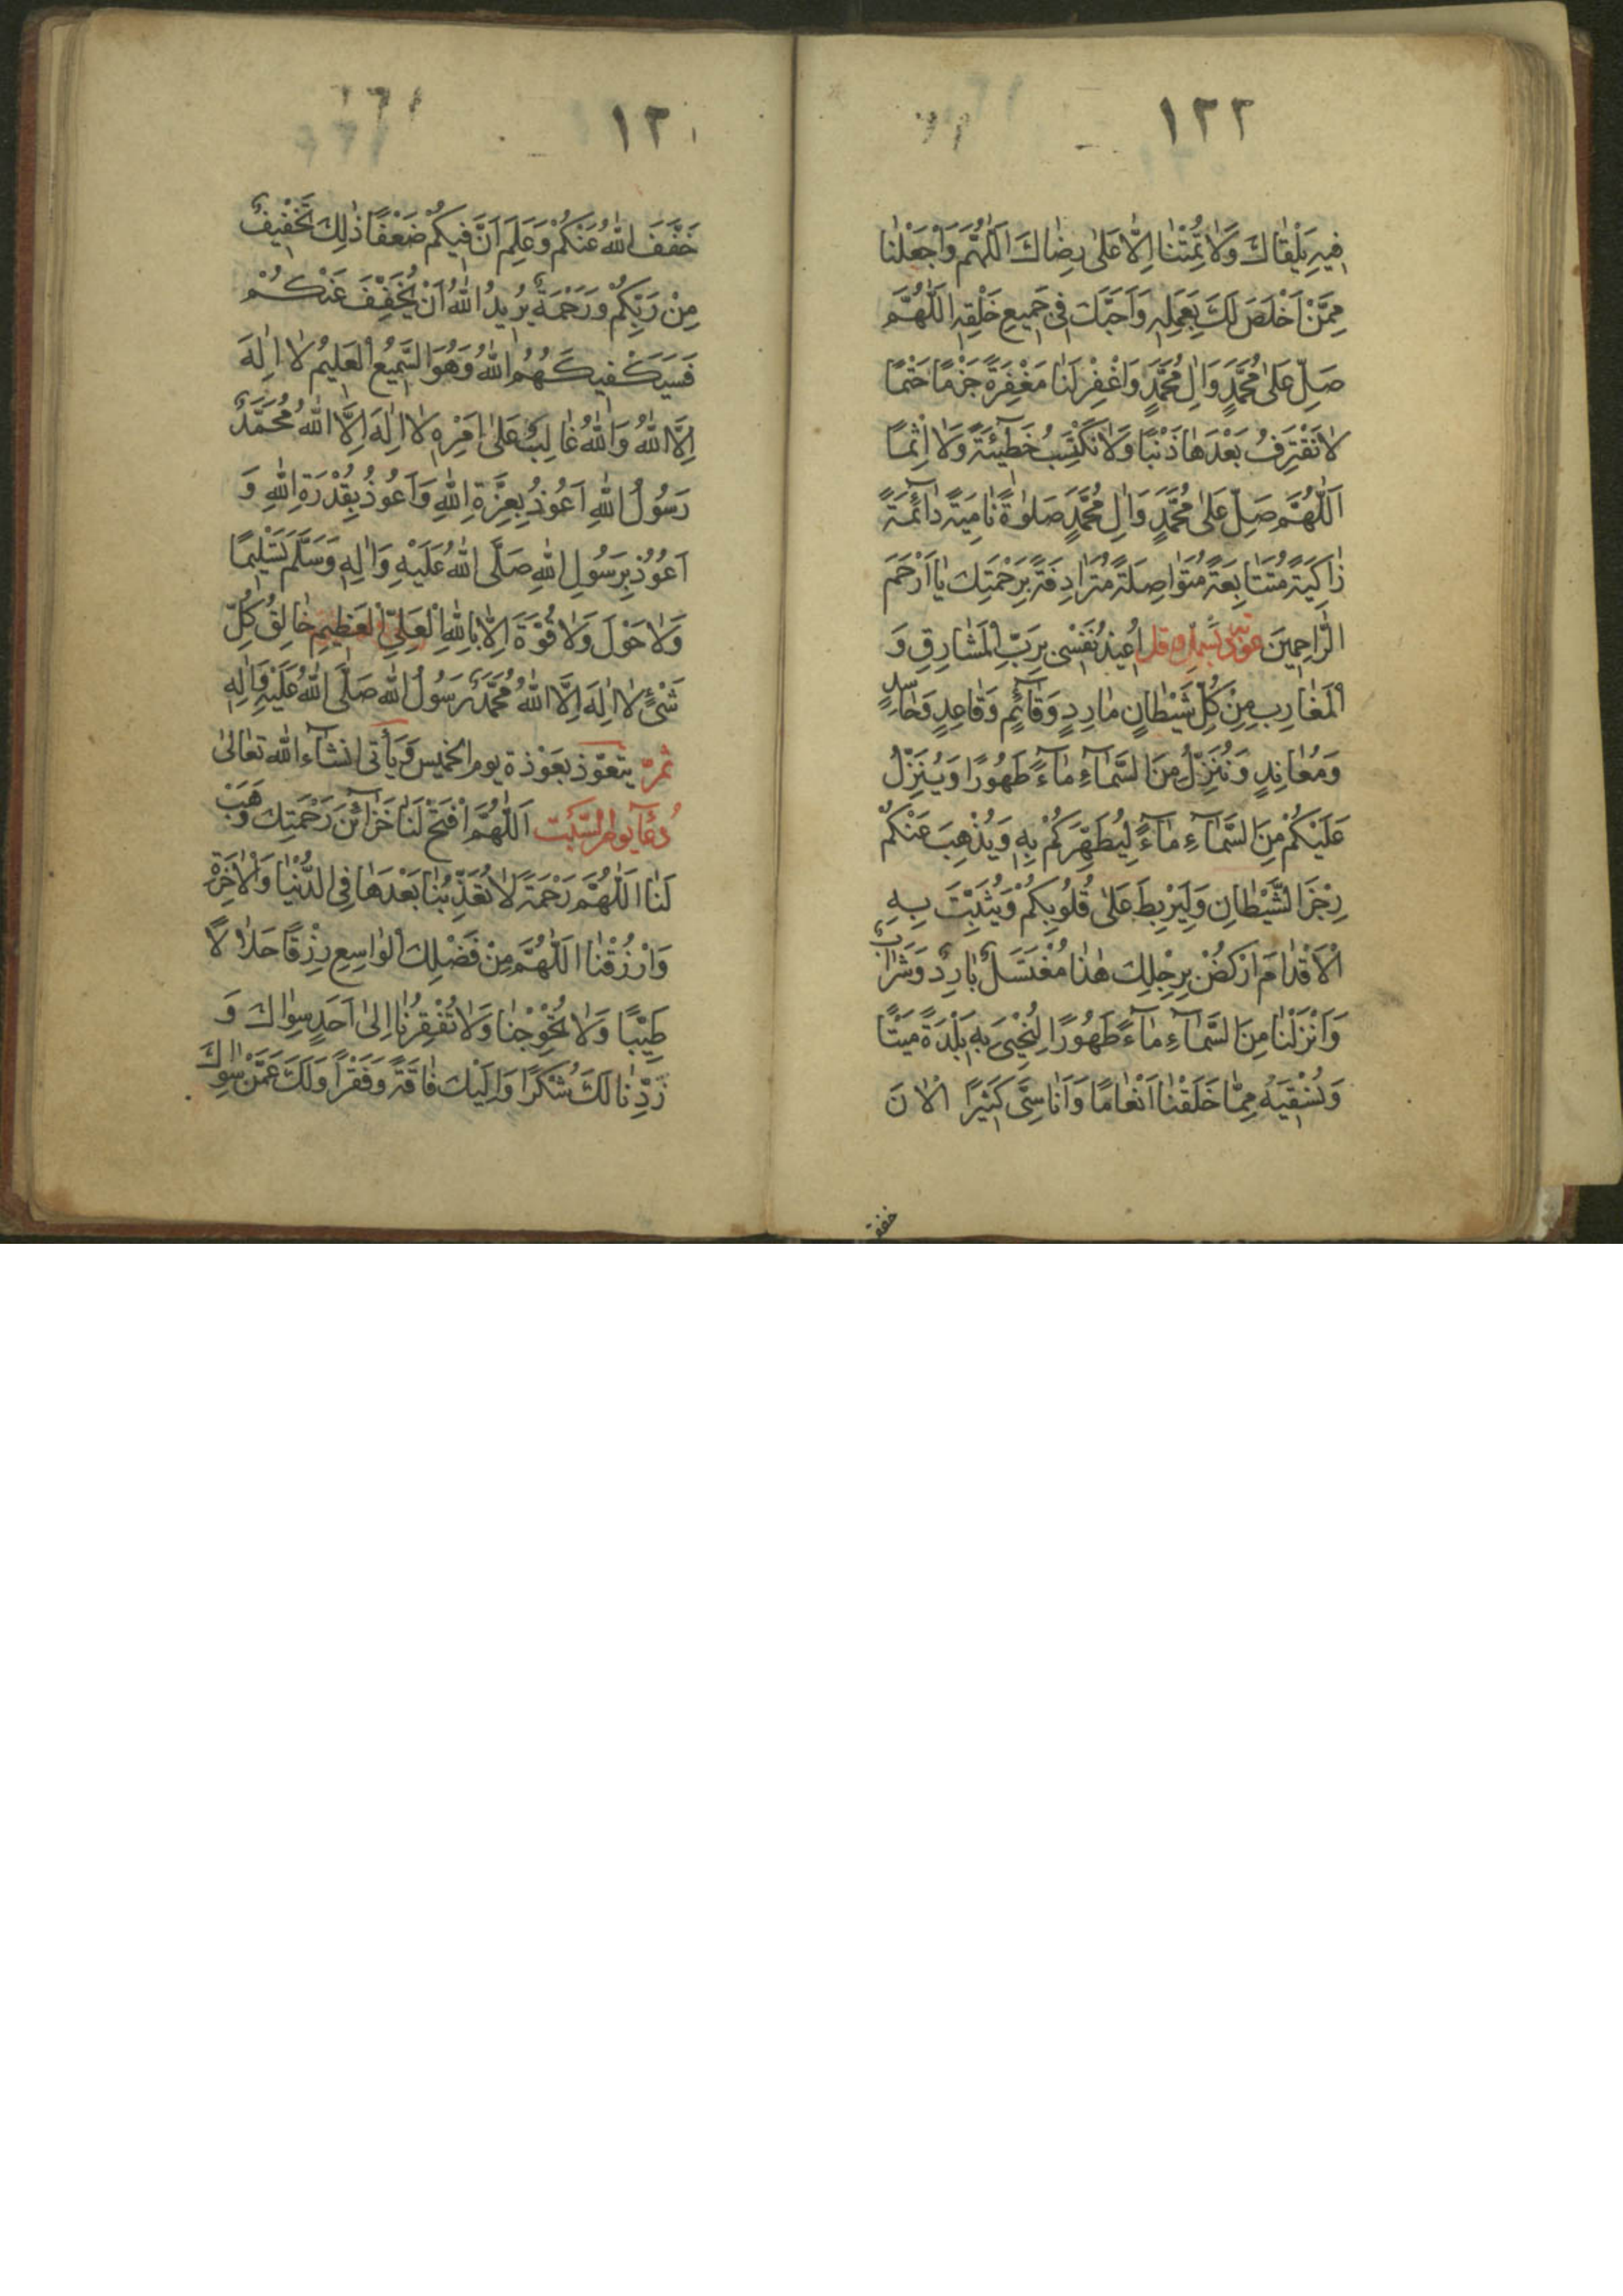 ١٢٢
فِيهِ يَلْقَاكَ وَلَا تُمِتْنَا اِلَّا عَلَى رِضَاكَ اَللّٰهُمَّ وَاجْعَلْنَا
مِمَّنْ اَخْلَصَ لَكَ بِعَمَلِهِ وَاَحَبَّكَ فِى جَمِيعِ خَلْقِهِ اَللّٰهُمَّ
صَلِّ عَلٰى مُحَمَّدٍ وَاٰلِ مُحَمَّدٍ وَاغْفِرْ لَنَا مَغْفِرَةً جَزْمًا حَتْمًا
لَا نَقْتَرِفُ بَعْدَهَا ذَنْبًا وَلَا نَكْتَسِبُ خَطِيْئَةً وَلَا اِثْمًا
اَللّٰهُمَّ صَلِّ عَلٰى مُحَمَّدٍ وَاٰلِ مُحَمَّدٍ صَلٰوةً نَامِيَةً دَائِمَةً
زَاكِيَةً مُتَتَابِعَةً مُتَوَاصِلَةً مُتَرَادِفَةً بِرَحْمَتِكَ يَا اَرْحَمَ
الرَّاحِمِينَ اُعِيذُ نَفْسِى بِرَبِّ الْمَشَارِقِ وَ
الْمَغَارِبِ مِنْ كُلِّ شَيْطَانٍ مَارِدٍ وَقَائِمٍ وَقَاعِدٍ وَحَاسِدٍ
وَمُعَانِدٍ وَنُنَزِّلُ مِنَ السَّمَاءِ مَاءً طَهُورًا وَيُنَزِّلُ
عَلَيْكُمْ مِنَ السَّمَاءِ مَاءً لِيُطَهِّرَكُمْ بِهِ وَيُذْهِبَ عَنْكُمْ
رِجْزَ الشَّيْطَانِ وَلِيَرْبِطَ عَلٰى قُلُوبِكُمْ وَيُثَبِّتَ بِهِ
الْاَقْدَامَ اُرْكُضْ بِرِجْلِكَ هٰذَا مُغْتَسَلٌ بَارِدٌ وَشَرَابٌ
وَاَنْزَلْنَا مِنَ السَّمَاءِ مَاءً طَهُورًا لِنُحْيِىَ بِهِ بَلْدَةً مَيْتًا
وَنُسْقِيَهُ مِمَّا خَلَقْنَا اَنْعَامًا وَاَنَاسِىَّ كَثِيرًا الْاٰنَ
خفف
خَفَّفَ اللّٰهُ عَنْكُمْ وَعَلِمَ اَنَّ فِيكُمْ ضَعْفًا ذٰلِكَ تَخْفِيفٌ
مِنْ رَبِّكُمْ وَرَحْمَةٌ يُرِيدُ اللّٰهُ اَنْ يُخَفِّفَ عَنْكُمْ
فَسَيَكْفِيكَهُمُ اللّٰهُ وَهُوَ السَّمِيعُ الْعَلِيمُ لَا اِلٰهَ
اِلَّا اللّٰهُ وَاللّٰهُ غَالِبٌ عَلٰى اَمْرِهِ لَا اِلٰهَ اِلَّا اللّٰهُ مُحَمَّدٌ
رَسُولُ اللّٰهِ اَعُوذُ بِعِزَّةِ اللّٰهِ وَاَعُوذُ بِقُدْرَةِ اللّٰهِ وَ
اَعُوذُ بِرَسُولِ اللّٰهِ صَلَّى اللّٰهُ عَلَيْهِ وَاٰلِهِ وَسَلَّمَ تَسْلِيمًا
وَلَا حَوْلَ وَلَا قُوَّةَ اِلَّا بِاللّٰهِ الْعَلِىِّ الْعَظِيمِ خَالِقُ كُلِّ
شَىْءٍ لَا اِلٰهَ اِلَّا اللّٰهُ مُحَمَّدٌ رَسُولُ اللّٰهِ صَلَّى اللّٰهُ عَلَيْهِ وَاٰلِهِ
ثمّ يتعوّذ بعَوْذة يوم الخميس وَيأتى انشآء اللّٰه تعالى
دُعَآء يوم السَّبْت اَللّٰهُمَّ افْتَحْ لَنَا خَزَائِنَ رَحْمَتِكَ وَهَبْ
لَنَا اَللّٰهُمَّ رَحْمَةً لَا تُعَذِّبُنَا بَعْدَهَا فِى الدُّنْيَا وَالْاٰخِرَةِ
وَارْزُقْنَا اَللّٰهُمَّ مِنْ فَضْلِكَ الْوَاسِعِ رِزْقًا حَلَالًا
طَيِّبًا وَلَا تُحْوِجْنَا وَلَا تُفْقِرْنَا اِلٰى اَحَدٍ سِوَاكَ وَ
زِدْنَا لَكَ شُكْرًا وَاِلَيْكَ فَاقَةً وَفَقْرًا وَلَكَ عَمَّنْ سِوَاكَ